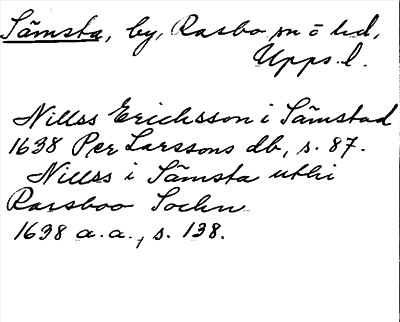 Sämsta, by, Rasbo sn o hd,
Upps. l.
Nillss Ericksson i Sämstad
1638 Per Larssons db, s. 87.
Nillss i Sämsta uthi
Rarsboo Sochn
1638 a. a., s. 138.